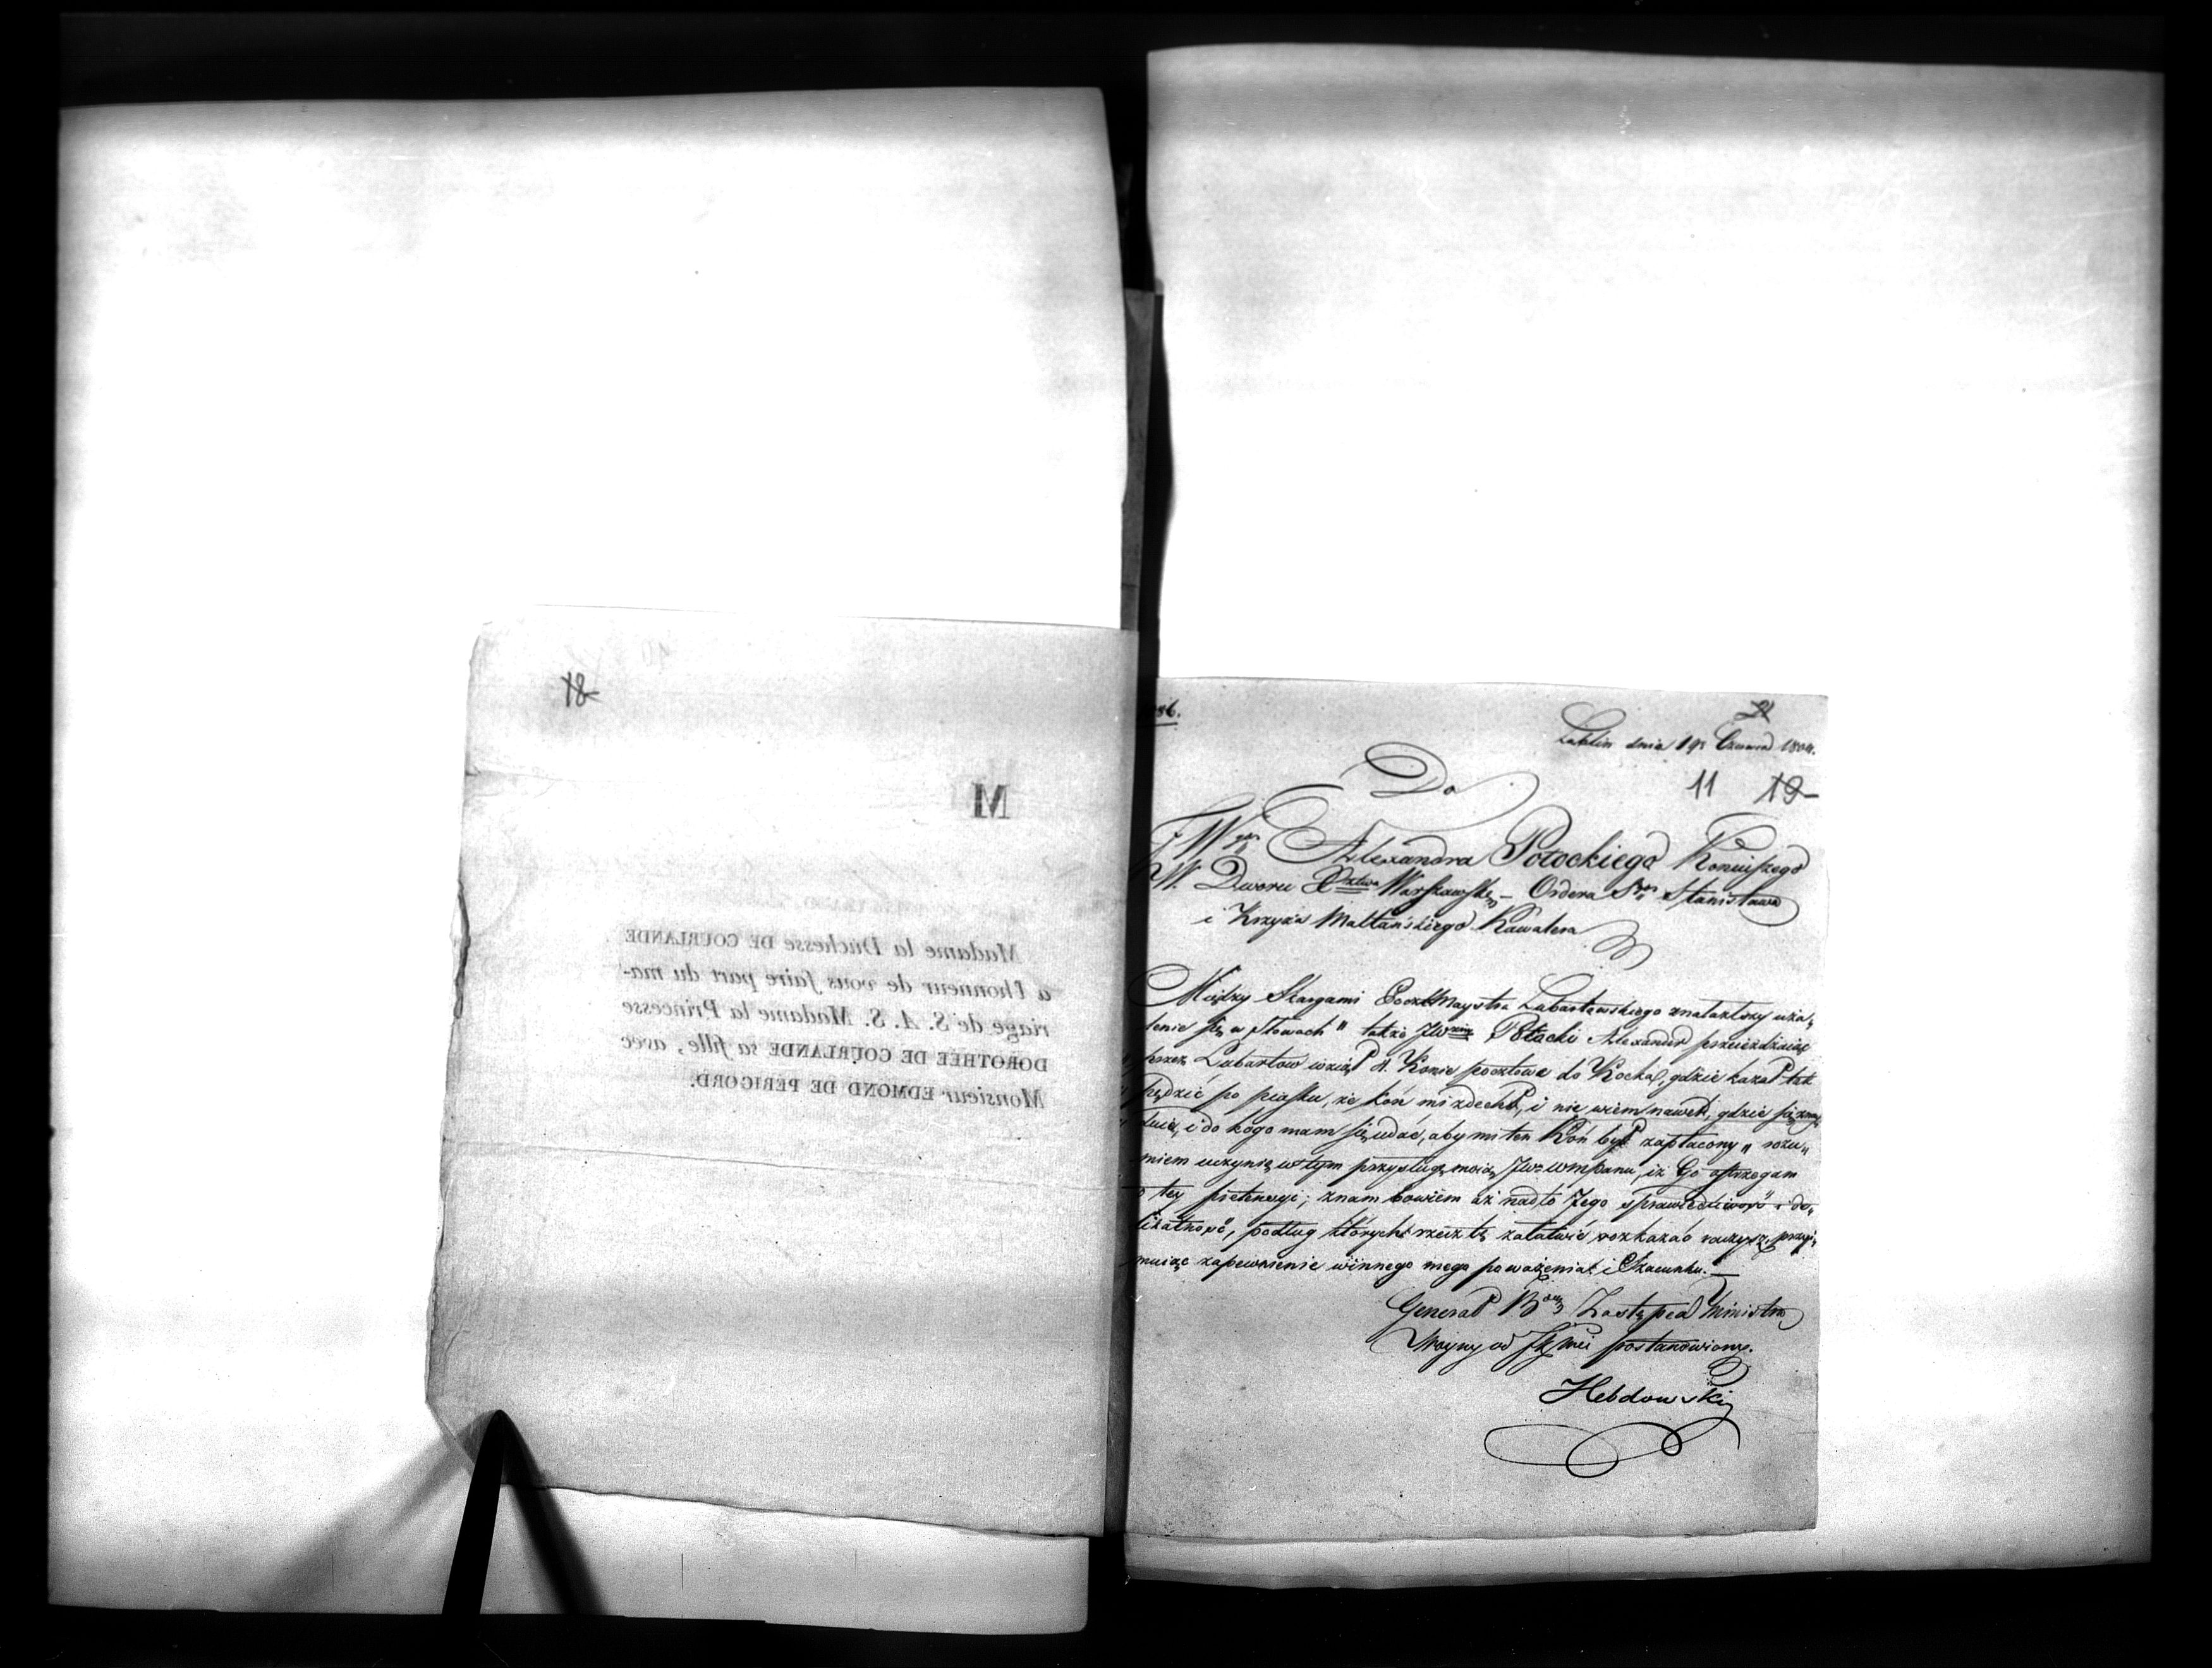 18
M
Madame la Duchesse DE COURLANDE
a l'honneur de vous faire part du ma-
riage de S. A. S. Madame la Princesse
DOROTHÉE DE COURLANDE sa fille, avec
Monsieur EDMOND DE PÉRIGORD.
86.
Lublin dnia 19 Czerwca
11 19
Do
JW Alexandra Potockiego Koniuszego
W. Dworu Xztwa Warszawskie – Ordera Stanisława
i Krzyża Maltańskiego Kawalera
Między Skargami PocztMaystra Lubartowskiego znalazłszy uża„
lenie się w słowach" także JW Potocki Alexander przeieżdżaiąc
przez Lubartow wziął Konie pocztowe do Kocka, gdzie kazał tak
pędzić po piasku, że koń mi zdechł, i nie wiem nawet, gdzie się znay
duie, i do kogo mam się udać, aby mi ten Koń był zapłacony „ rozu„
miem uczynię w tym przysługę moię JWWmPanu, iż Go ostrzegam
o tey pretensyi; znam bowiem aż nadto Jego sprawiedliwość i de„
likatność, podług których rzecz tę załatwić rozkazać raczysz, przyi„
muiąc zapewnienie winnego mego poważenia i Szacunku. –
Generał Zastępca Ministra
Woyny od postanowiony.
Hebdowski